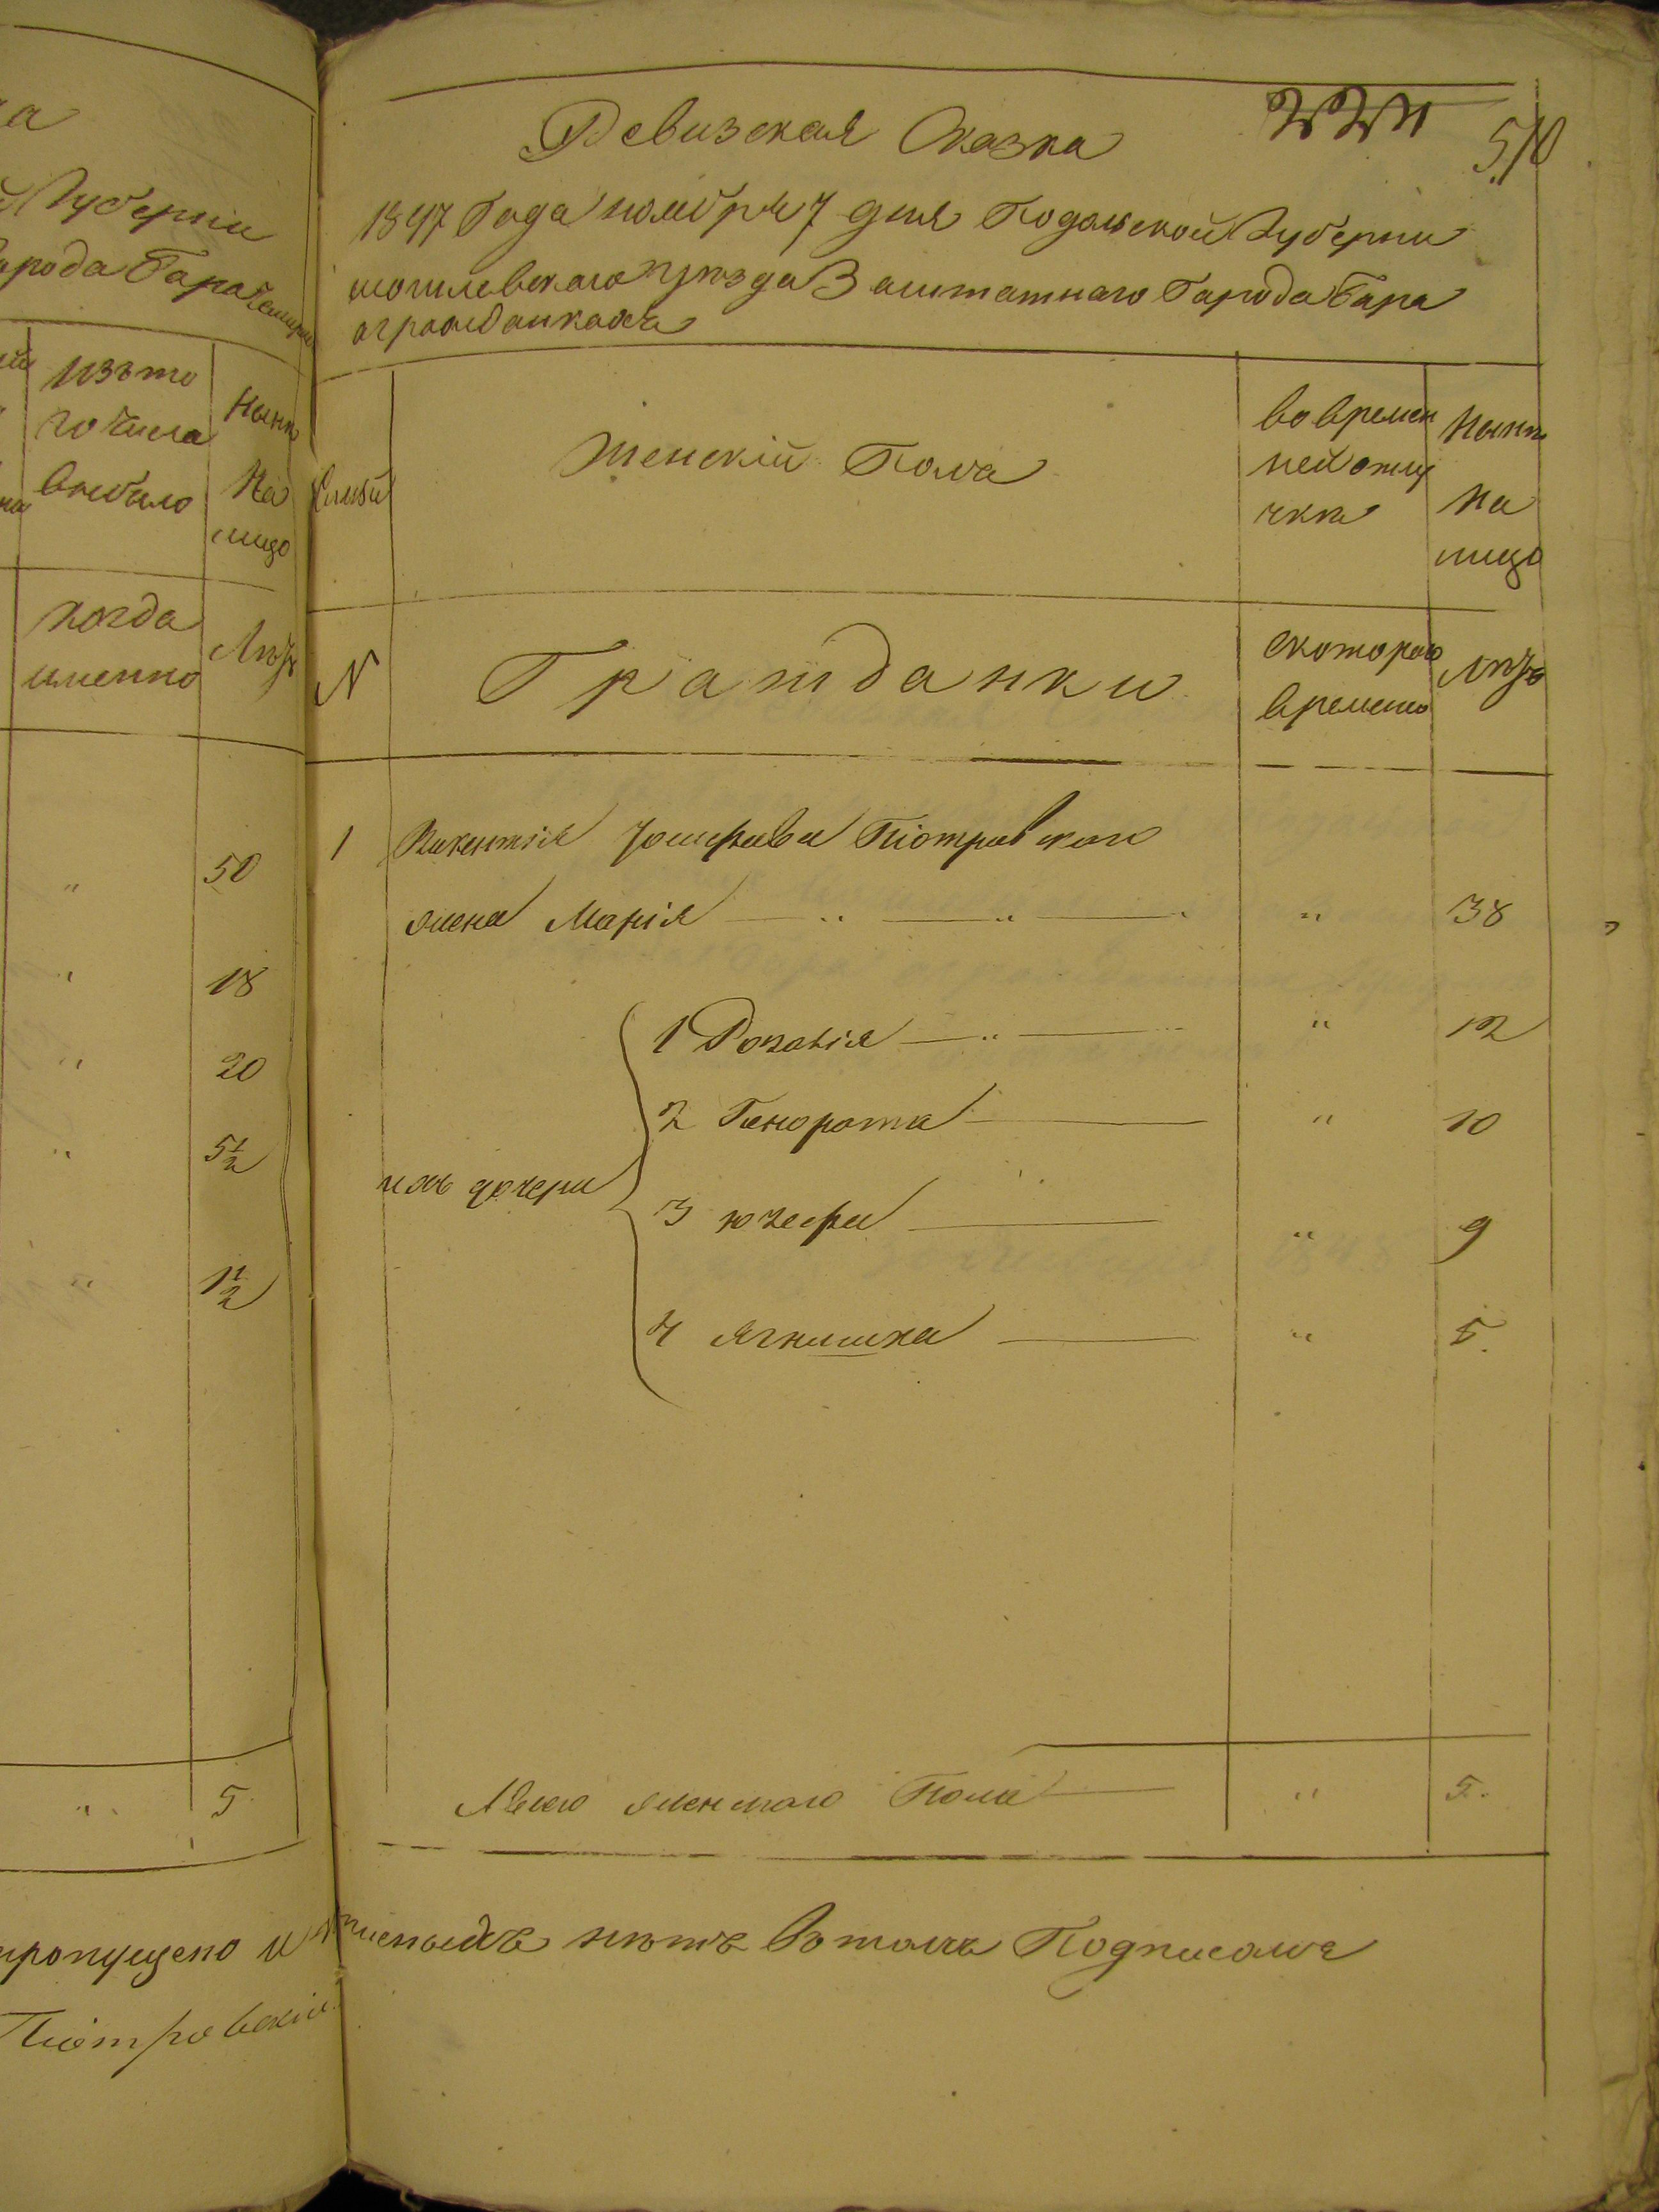 а
Губерніи
города Бара
изъ то
го числа
выбыло
Нынѣ
На
лицо
когда
именно
Лѣтъ
„ 50
„ 18
„ 20
„ 5½
„ 1½
„ 5
пропущено и
Піотровскій
Ревизская Сказка
510
1847 Года ноября 7 дня Подольской Губерніи
могилевскаго уѣзда Заштатнаго Города Бара
огражданкахъ
Женскій Полъ
во времен
ной отлу
чкѣ
Нынѣ
На
лицо
N
Гражданки
скотораго
времени
Лѣтъ
1 Викентія Юзефова Піотровскаго
жена Марія „ 38
ихъ дочери
1 Розалія „ 12
2 Генората „ 10
3 юзефа „ 9
4 Ягнишка „ 5.
Всего женскаго Пола „ 5.
нѣтъ втомъ Подписомъ